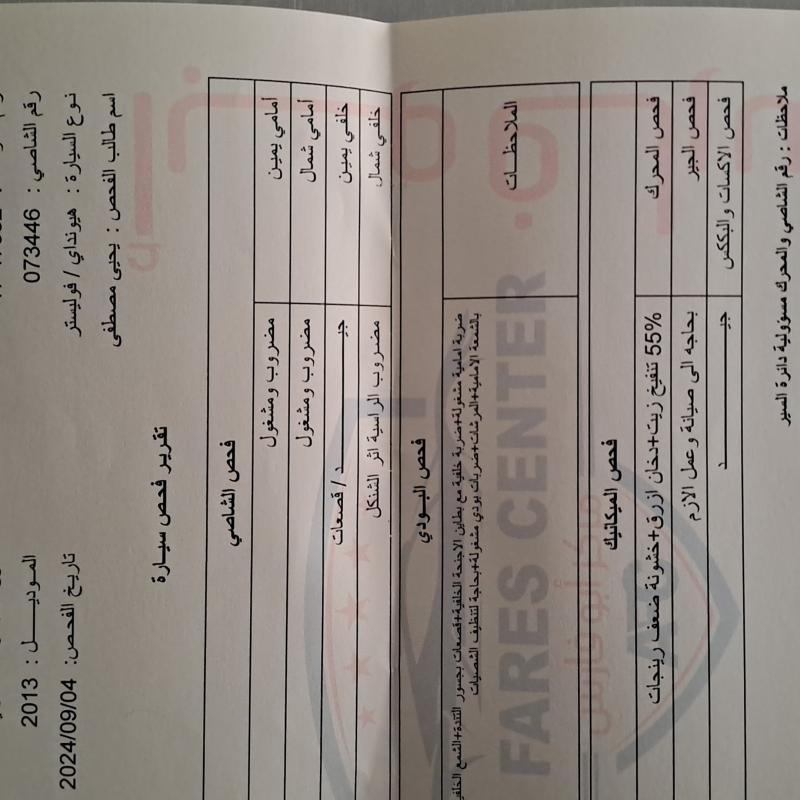 رقم الشاصي : 073446
الموديـــــل : 2013
نوع السيارة : هيونداي / فوليستر
تاريخ الفحص: 2024/09/04
اسم طالب الفحص : يحيى مصطفى
تقرير فحص سيـارة
فحص الشاصي
أمامي يمين مضروب ومشغول
أمامي شمال مضروب ومشغول
خلفي يمين جيــــــــــد / قصعات
خلفي شمال مضروب الراسية اثر الشنكل
فحص البـودي
الملاحظـــات
ضربة امامية مشغولة+ضربة خلفية مع بطاين الاجنحة الخلفية+قصعات بجسور التندة+الشمع
بالشمعة الامامية+المرشات+ضربات بودي مشغولة+بحاجة لتنظيف الشصيات
فحص الميكانيك
فحص المحرك 55% تنفيخ زيت+دخان ازرق+خشونة ضعف رينجات
فحص الجير بحاجه الى صيانة وعمل الازم
فحص الاكسات والبككس جيــــــــــد
ملاحظات : رقم الشاصي والمحرك مسؤولية دائرة السير
FARES CENTER
مركز أبو فارس